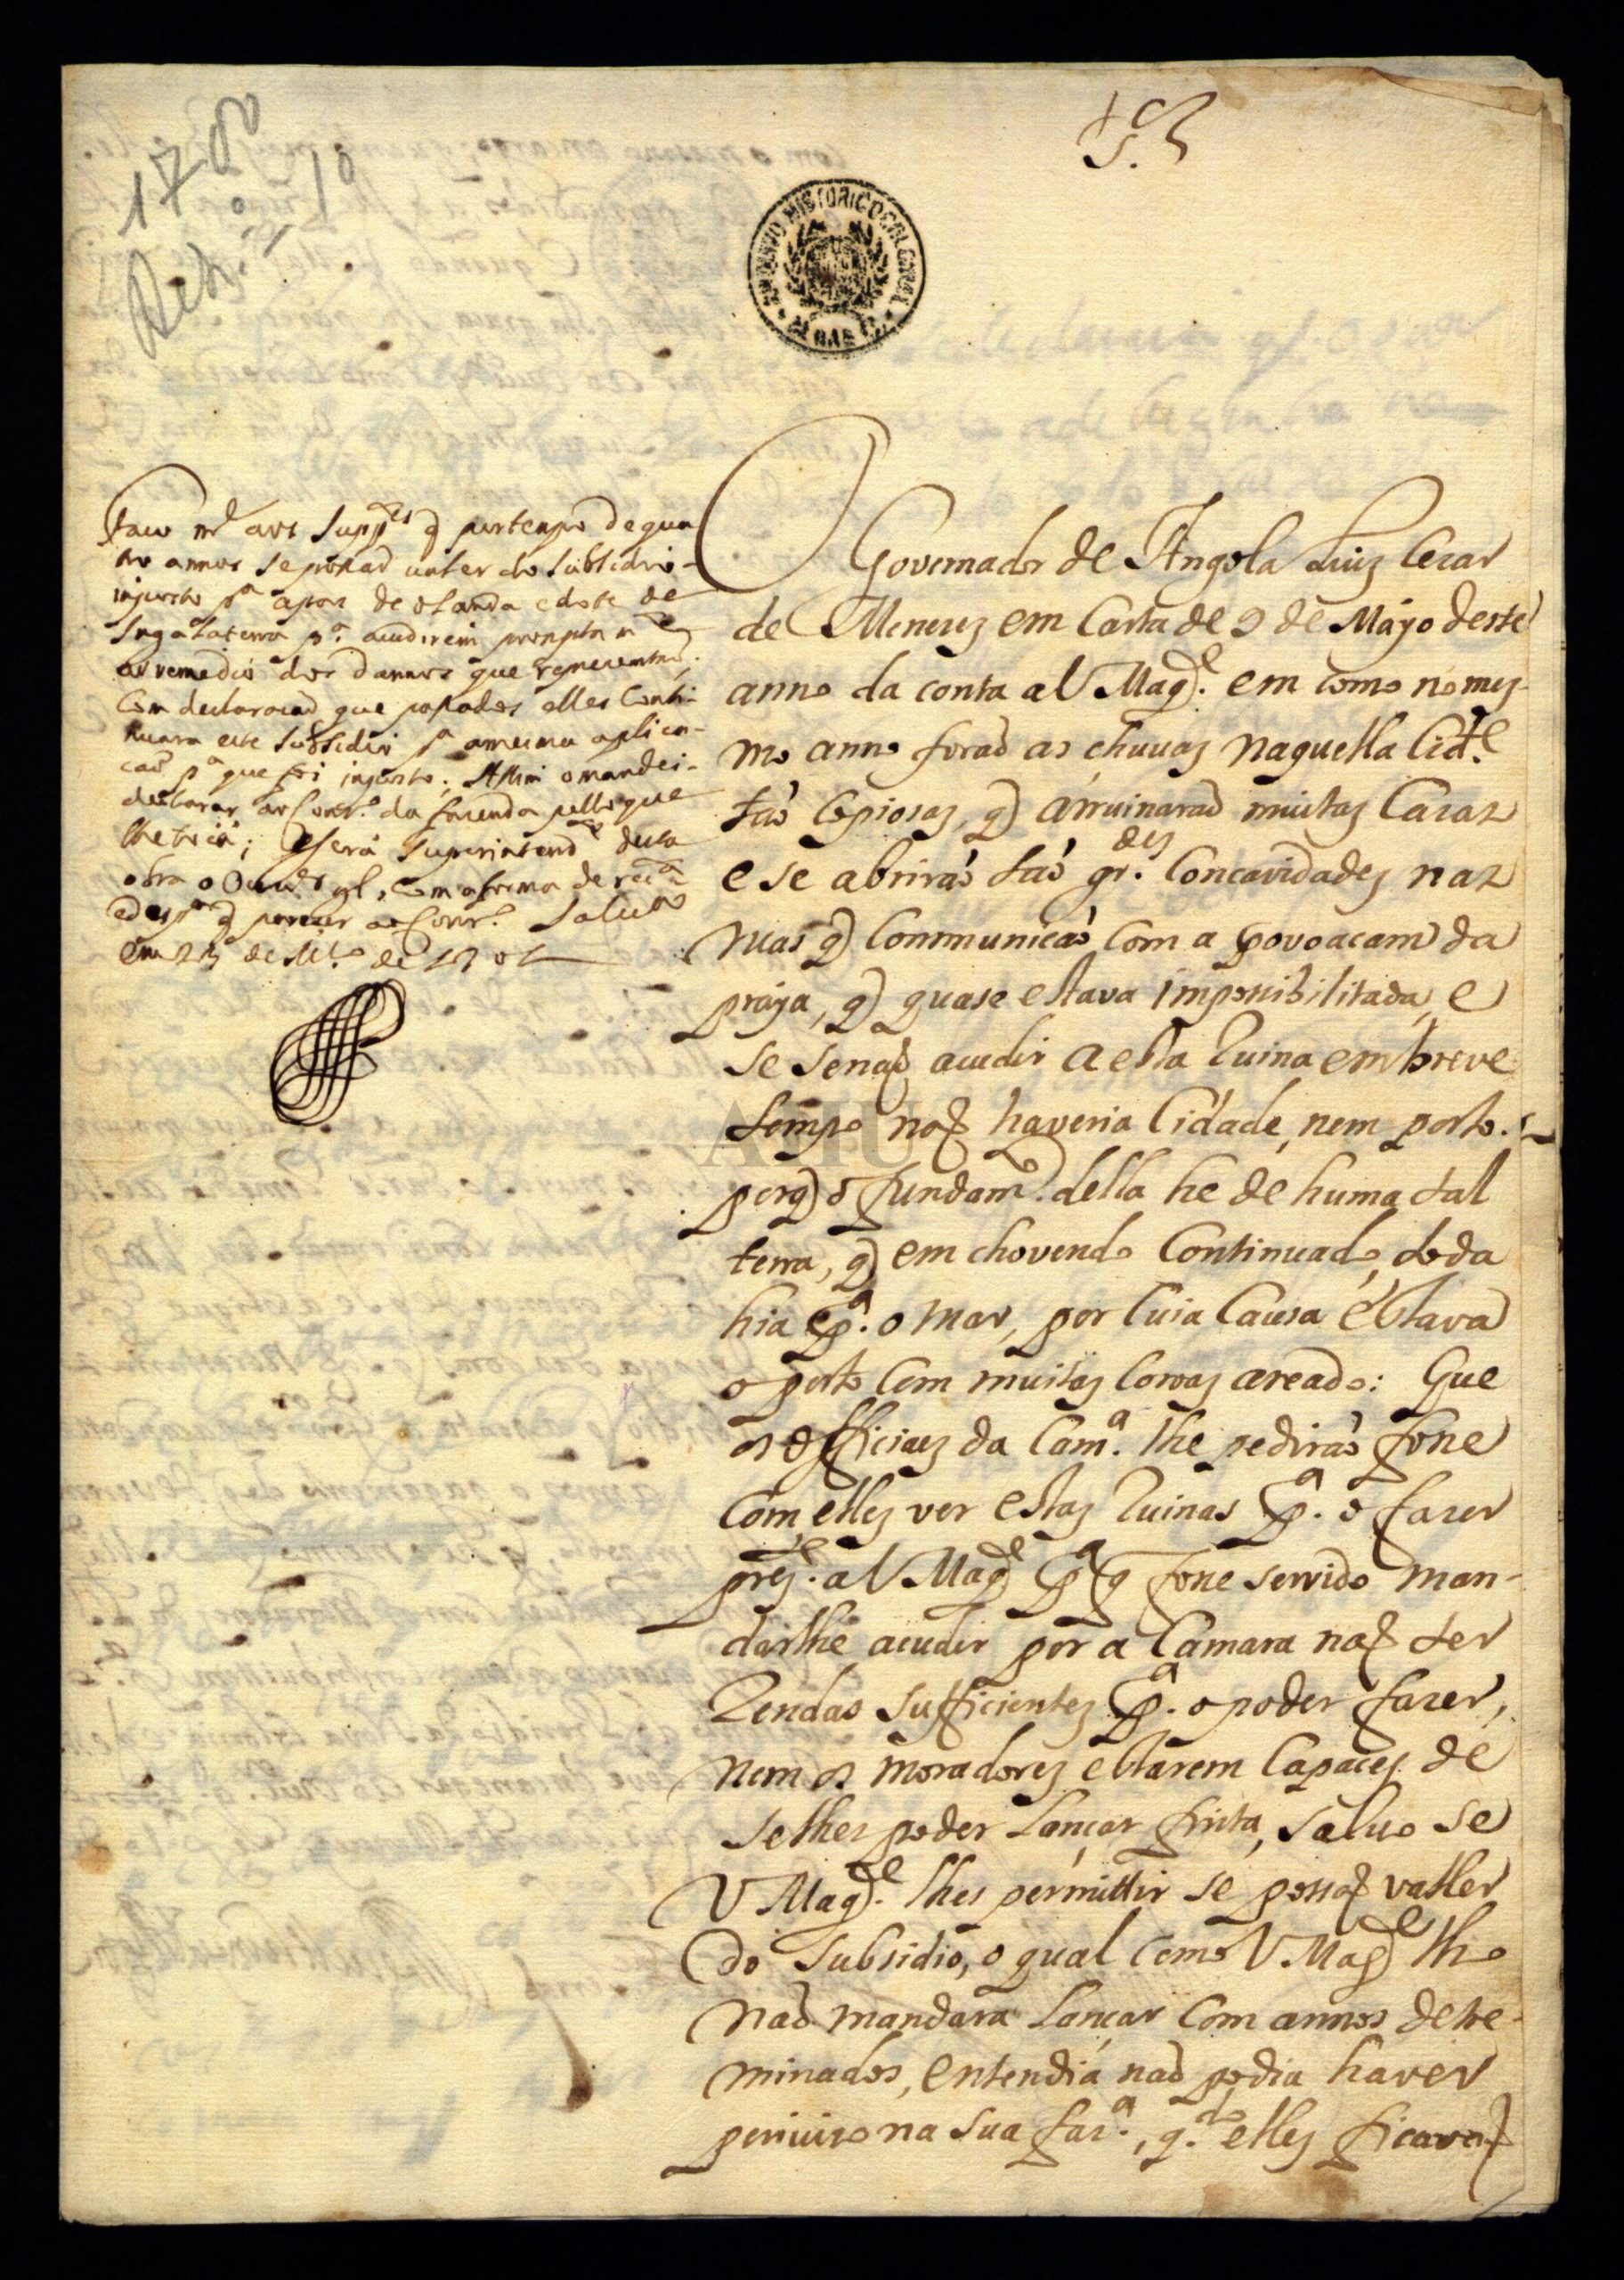 1700
Setbr.º 10
S.r
ARQUIVO HISTORICO COLONIAL
LISBOA
AHU
Faço m.ce aos Supp.es q por tempo de qua
tro annos se possaõ valer do subsidio
imposto p.ª a paz de olanda e dote de
Ingalaterra p.ª acudirem promptam.te
ao remedio dos damnos que representaõ;
Com declaraçaõ que passados elles Conti-
nuara este subsidio p.ª a mesma aplica-
caõ p.ª que foi imposto; Assim o mandei
declarar ao Cons.º da fazenda pello que
lhe toca; E sera superintend.e desta
obra o Ouu.or g.l, com a forma de rec.ta
e desp.ª q parecer ao Cons.º
em 23 de de 1701
O Governador de Angola Luiz Cezar
de Menezes em Carta de 9 de Mayo deste
anno da conta a V Mag.de em como no mez-
mo anno foraõ as chuuas naquella Cid.e
taõ Copiosas, q arruinaraõ muitas Cazas
e se abriraõ taõ gr.des Concavidades nas
ruas q Communicaõ, Com a povoacam da
praya, q quase estava impossibilitada, e
se se naõ acudir a esta Ruina em breve
tempo naõ haveria Cidade, nem porto.
porq o fundam.to della he de huma tal
terra, q em chovendo Continuado, toda
hia p.ª o mar, por Cuia Causa estava
o porto Com muitas Coroas areado: Que
os officiaes da Cam.ª lhe pediraõ fosse
Com elles ver estas Ruinas p.ª o fazer
prez.e a V Mag.de p.ª q fosse servido man-
darlhe acudir por a Camara naõ ter
Rendas sufficientes p.ª o poder fazer,
nem os moradores estarem Capaces de
se lhes poder Lançar finta, saluo se
V Mag.de lhes permittir se possaõ valler
do subsidio, o qual como V Mag.de lho
naõ mandara Lançar Com annos detre-
minados, entendia naõ podia haver
periuizo na sua faz.ª, q.to elles ficavaõ